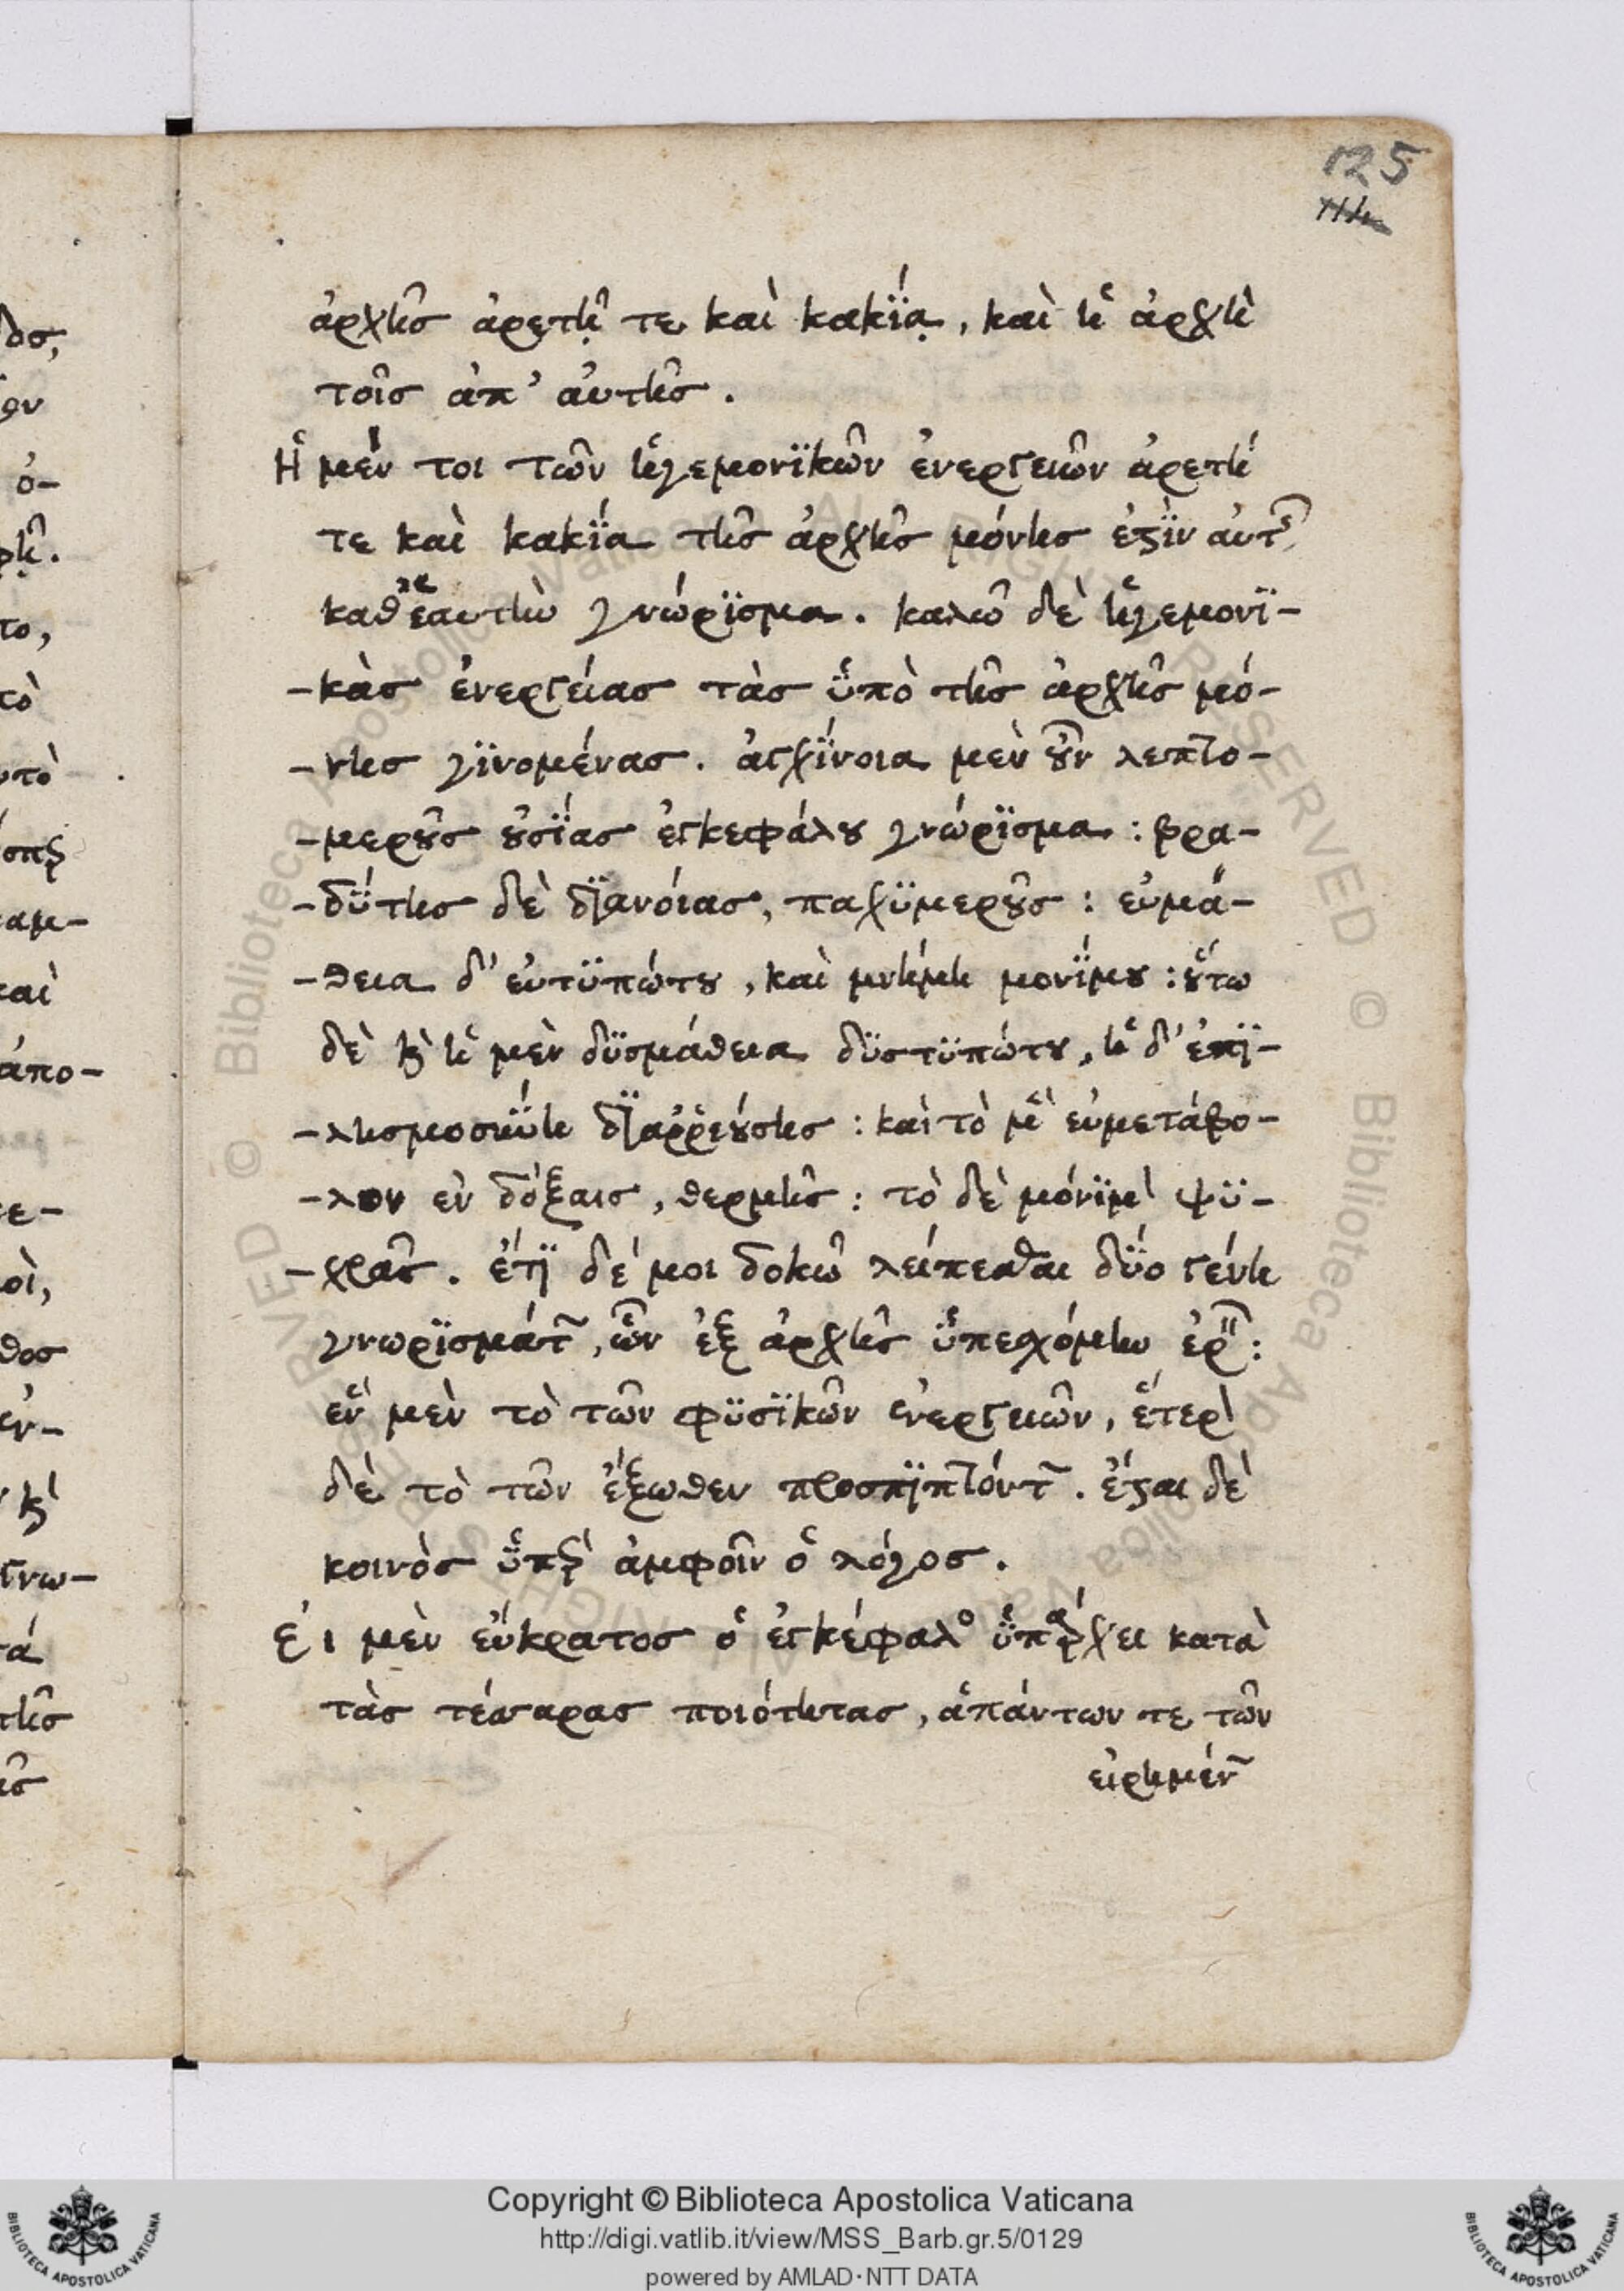 125
114
ἀρχῆσ ἀρετῇ τε καὶ κακΐᾳ, καὶ ἡ ἀρχὴ
τοῖσ ἀπ' ἀυτῆσ.
Ἡ μέν τοι τῶν ἡγεμονϊκῶν ἐνεργειῶν ἀρετή
τε καὶ κακΐα τῆσ ἀρχῆσ μόνησ ἐϛϊν ἀυτῆς
καθ' ἑαυτὴν γνώρϊσμα. καλῶ δὲ ἡγεμονϊ-
-κὰσ ἐνεργείασ τὰσ ὑπὸ τῆσ ἀρχῆσ μό-
-νησ γϊνομένασ. ἀγχΐνοια μὲν ȣ̓͂ν λεπτο-
-μερȣ͂σ ȣ̓σΐασ ἐγκεφάλȣ γνώρϊσμα : βρα-
-δΰτησ δὲ δϊανόιασ, παχϋμερȣ͂σ : εὐμά-
-θεια δ' εὐτϋπώτȣ, καὶ μνήμη μονΐμȣ : ȣ̔́τω
δὲ ϗ ἡ μὲν δϋσμάθεια δϋστϋπώτȣ, ἡ δ' ἐπϊ-
-λησμοσΰνη δϊαῤῥεȣ́σησ : καὶ τὸ μὲν εὐμετάβο-
-λον εν δόξαισ, θερμῆσ : τὸ δὲ μόνϊμον ψϋ-
-χρᾶσ. ἔτϊ δέ μοι δοκῶ λείπεσθαι δΰο γένη
γνωρϊσμάτων, ὧν ἐξ ἀρχῆσ ὑπεσχόμην ἐρεῖν :
ἓν μὲν τὸ τῶν φϋσϊκῶν ἐνεργειῶν, ἕτερον
δὲ τὸ τῶν ἔξωθεν προσπϊπτόντων. ἔϛαι δὲ
κοινὸσ ὑπὲρ ἀμφοῖν ὁ λόγοσ.
Εἰ μὲν εὔκρατοσ ὁ ἐγκέφαλος ὑπάρχει κατὰ
τὰσ τέσσαρασ ποιότητασ, ἁπάντων τε τῶν
εἰρημένων
Copyright © Biblioteca Apostolica Vaticana
http://digi.vatlib.it/view/MSS_Barb.gr.5/0129
powered by AMLAD·NTT DATA